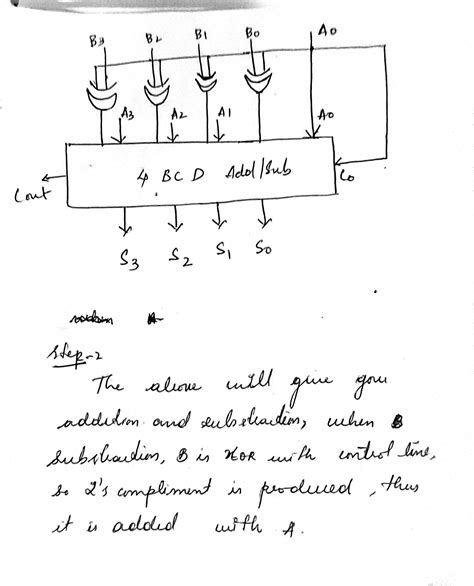 B3 B2 B1 B0 A0
A3 A2 A1 A0
4 BCD Add/Sub
Cout C0
S3 S2 S1 S0
Step-2
The above will give you
addition and substraction, when B
Substraction, B is XOR with control line,
so 2's compliment is produced, thus
it is added with A.